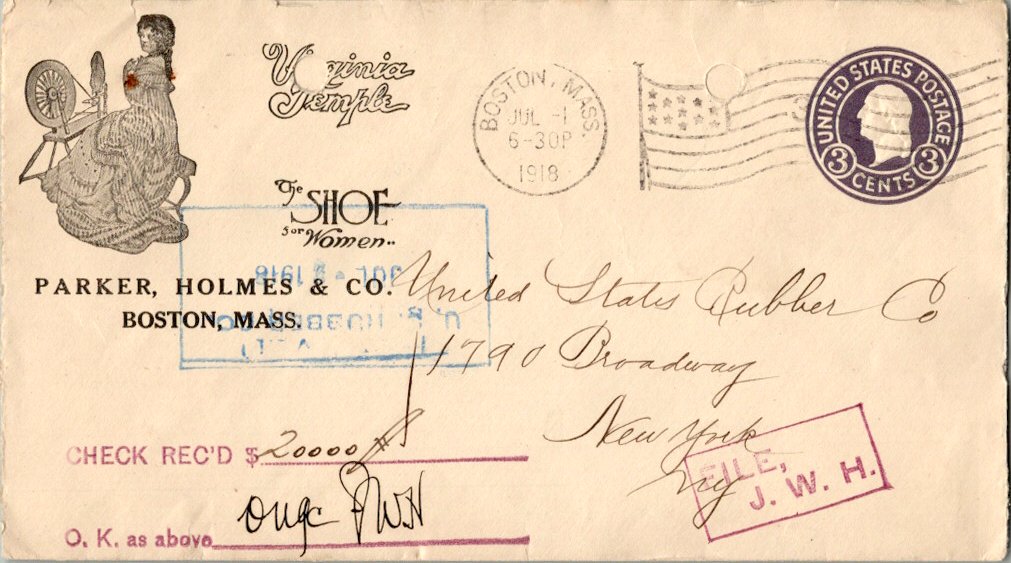 Virginia
Temple
The
SHOE
For
Women..
PARKER, HOLMES & CO.
BOSTON, MASS.
BOSTON, MASS.
JUL -1
6-30P
1918
UNITED STATES POSTAGE
3 CENTS 3
JUL - 1918
U. S. RUBBER CO
United States Rubber Co
1790 Broadway
New York
Ny
CHECK REC'D $ 20000
O. K. as above JWH
FILE,
J. W. H.